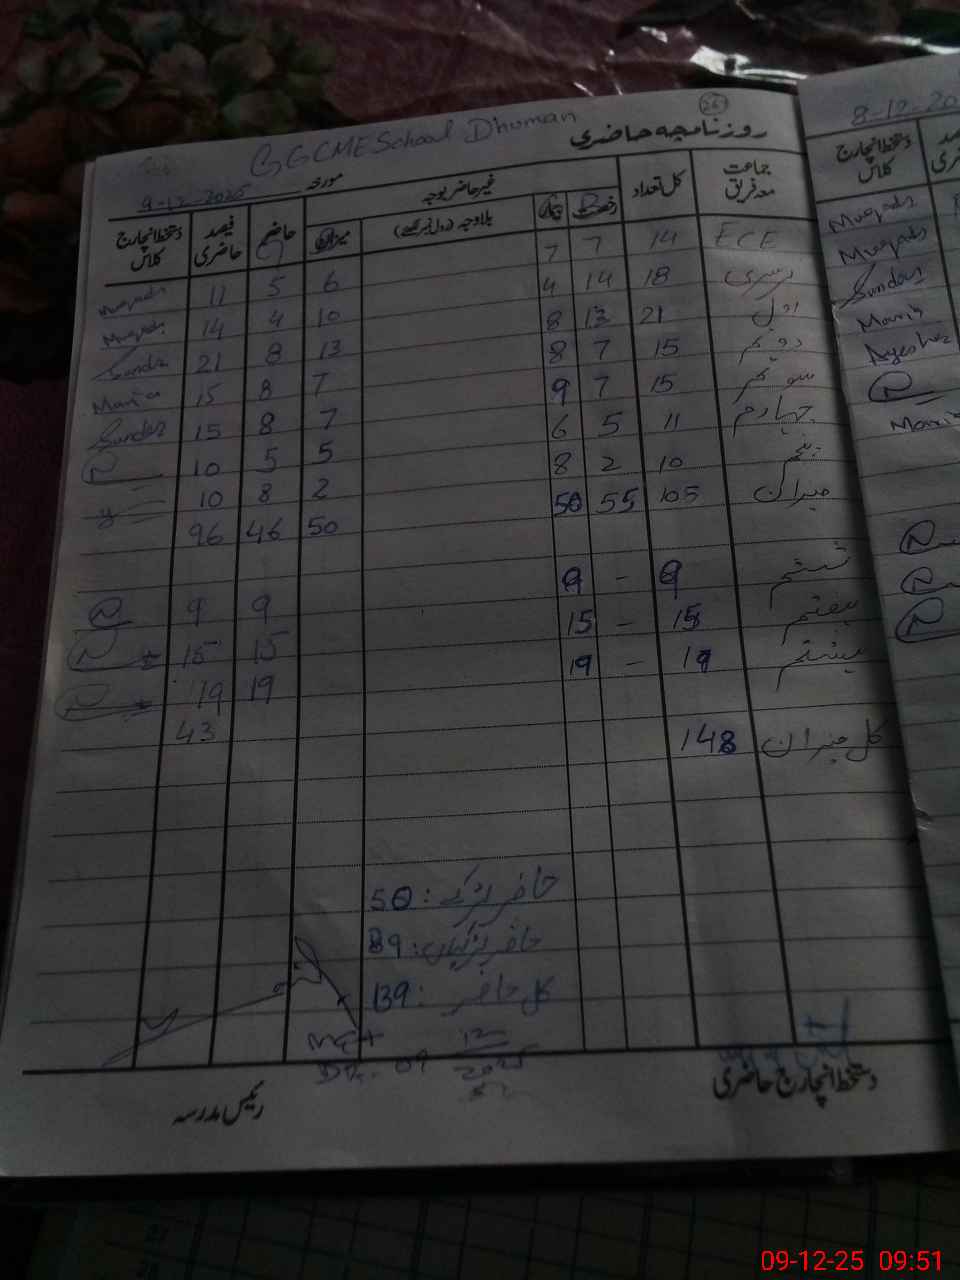 26
GGCMESchool Dhuman
روزنامچہ حاضری
مورخہ 9-12-2025
جماعت معہ فریق
کل تعداد
غیر حاضر بوجہ
رخصت
بیماری
بلاوجہ
میزان
حاضر
فیصد حاضری
دستخط انچارج کلاس
ECE 14 7 7 6 5 11
نرسری 18 14 4 10 4 14
اول 21 13 8 13 8 21
دوئم 15 7 8 7 8 15 Maria
سوئم 15 7 9 7 8 15
چہارم 11 5 6 5 5 10
پنجم 10 2 8 2 8 10
میزان 105 55 50 50 46 96
ششم 9 - 9 9 9
ہفتم 15 - 15 15 15
ہشتم 19 - 19 19 19
43
کل میزان 148
حاضر لڑکے : 50
حاضر لڑکیاں : 89
کل حاضر : 139
09 12 2025
دستخط انچارج حاضری
رئیس مدرسہ
8-12-20
دستخط انچارج کلاس
09-12-25 09:51